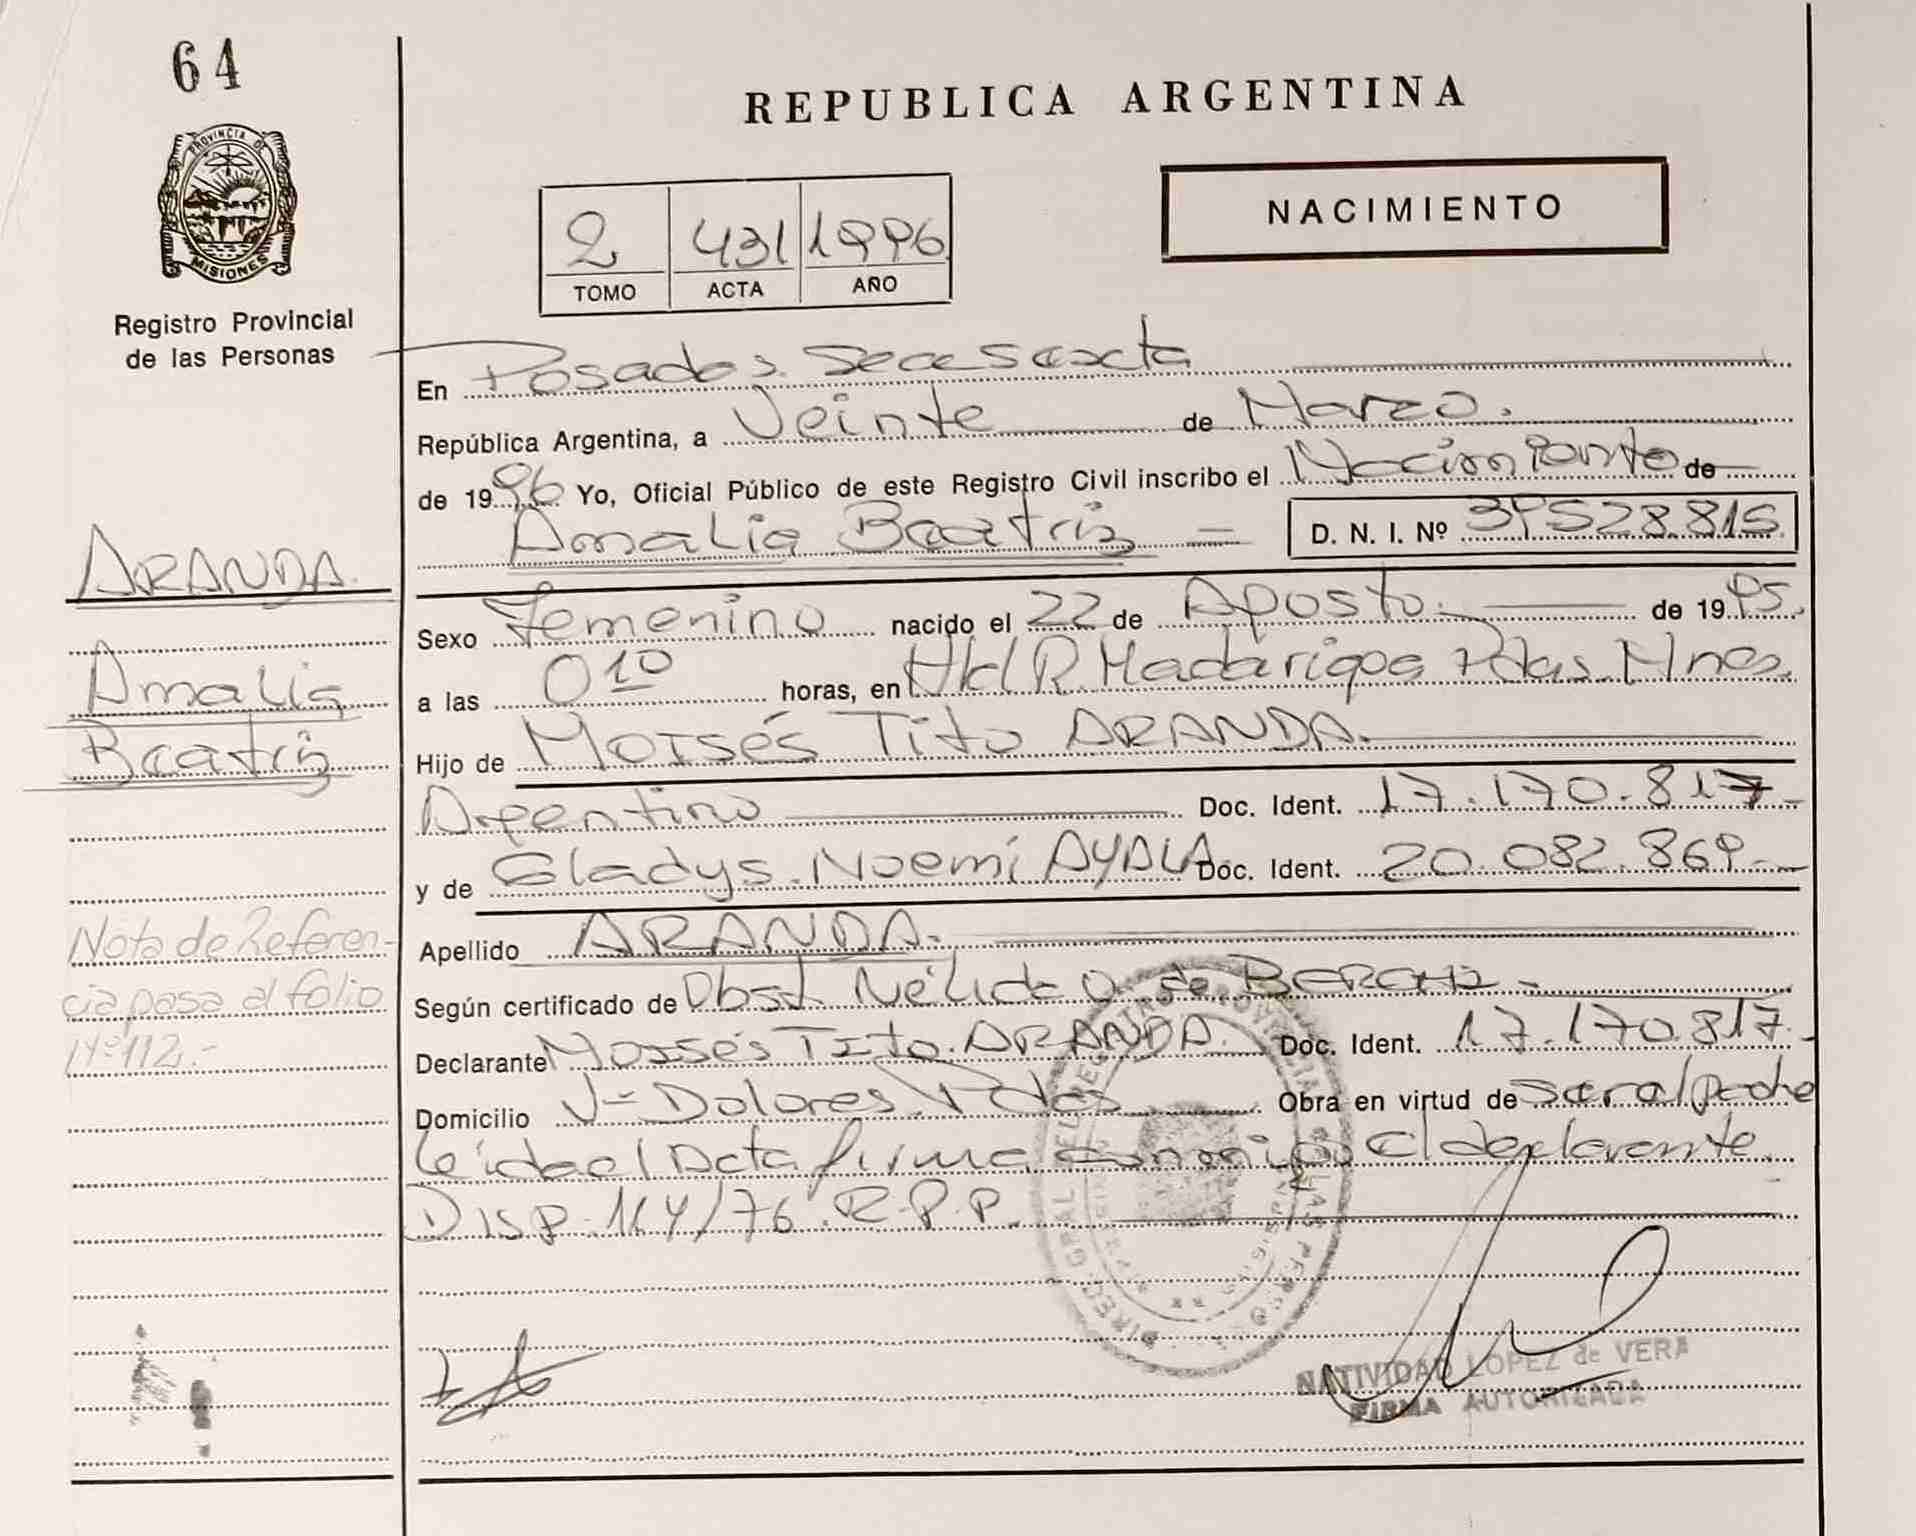 64
PROVINCIA DE
MISIONES
Registro Provincial
de las Personas
REPUBLICA ARGENTINA
NACIMIENTO
2 431 1996
TOMO ACTA AÑO
En Posadas. Secc Sexta
República Argentina, a Veinte de Marzo.
de 1996 Yo, Oficial Público de este Registro Civil inscribo el Nacimiento de
Amalia Beatriz D. N. I. Nº 39528.815
Sexo Femenino nacido el 22 de Agosto de 1995.
a las 010 horas, en R. Madariaga Pdas. Mnes.
Hijo de Moisés Tito ARANDA.
Argentino Doc. Ident. 17.170.817
y de Gladys. Noemí AYALA Doc. Ident. 20.082.869
Apellido ARANDA.
Según certificado de Obst. Nélida de
Declarante Moisés Tito. ARANDA. Doc. Ident. 17.170.817
Domicilio Dolores. Pdas Obra en virtud de ser al padre
Leída el Acta firma el declarante
Disp. 164/76. R.P.P.
ARANDA.
Amalia
Beatriz
Nota de Referen-
cia pasa al folio
Nº 112.-
NATIVIDAD LOPEZ de VERA
FIRMA AUTORIZADA